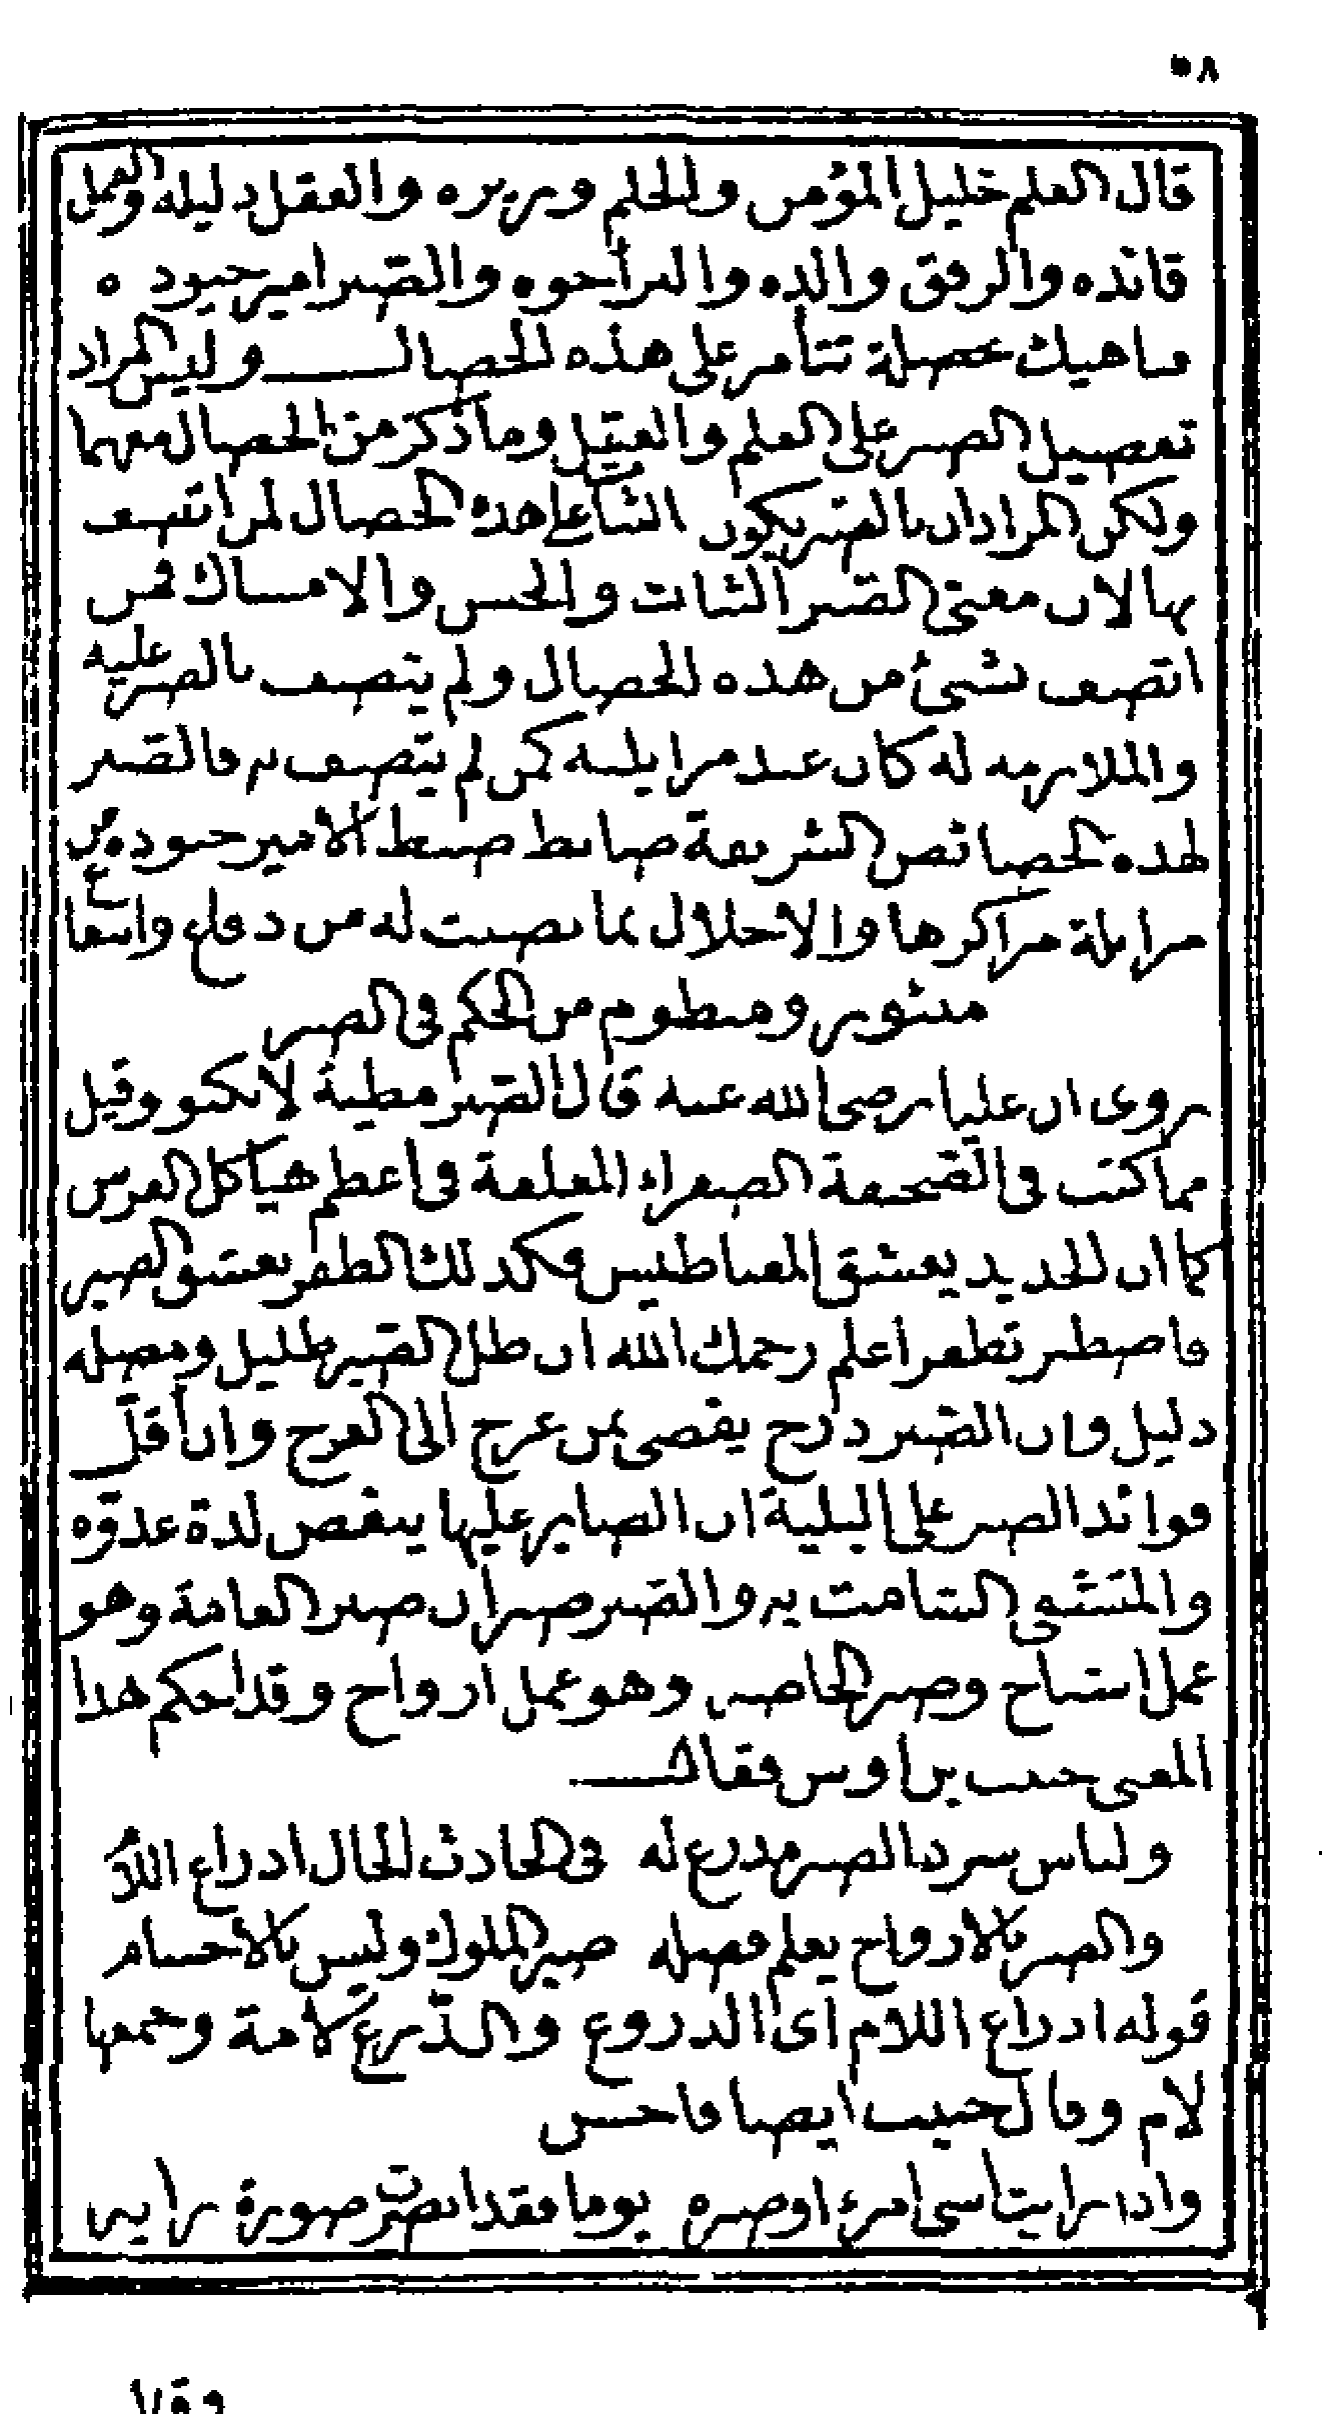 ٥٨
قال العلم خليل المؤمن والحلم وزيره والعقل دليله والعمل
قائده والرفق والده والبر أخوه والصبر امير جنوده
فناهيك بخصلة تتأمر على هذه الخصال وليس المراد
تفضيل الصبر على العلم والعقل وما ذكر من الخصال معهما
ولكن المراد ان بالصبر يكون الثبات على هذه الخصال لمن اتصف
بها لان معنى الصبر الثبات والحبس والامساك فمن
اتصف بشئ من هذه الخصال ولم يتصف بالصبر عليه
والملازمة له كان عند مزايلته كمن لم يتصف به فالصبر
لهذه الخصائص الشريفة ضابط ضبط الامير جنوده من
مزايلة مراكزها والاخلال بما نصبت له من دفاع وانتفاع
منثور ومنظوم من الحكم فى الصبر
روى ان عليا رضى الله عنه قال الصبر مطية لا تكبو وقيل
مما كتب فى الصحيفة الصفراء المعلقة فى اعظم هياكل الفرس
كما ان الحديد يعشق المغناطيس فكذلك الظفر يعشق الصبر
فاصطبر تظفر اعلم رحمك الله ان ظل الصبر ظليل وفضله
دليل وان الصبر درج يفضى بمن عرج الى الفرج وان أقل
فوائد الصبر على البلية ان الصابر عليها ينغص لذة عدوّه
والمتشفى الشامت به والصبر صبران صبر العامة وهو
عمل اشباح وصبر الخاصة وهو عمل ارواح وقد احكم هذا
المعنى حبيب بن اوس فقال
ولباس سرد الصبر مدرع له فى الحادث الجلل ادراع اللام
والصبر بالارواح يعلم فضله صبر الملوك وليس بالاجسام
قوله ادراع اللام اى الدروع والدرع لامة وجمعها
لام وقال حبيب ايضا فاحسن
واذا رايت اسى امرء او صبره يوما فقد ابصرت صورة رايه
وقال